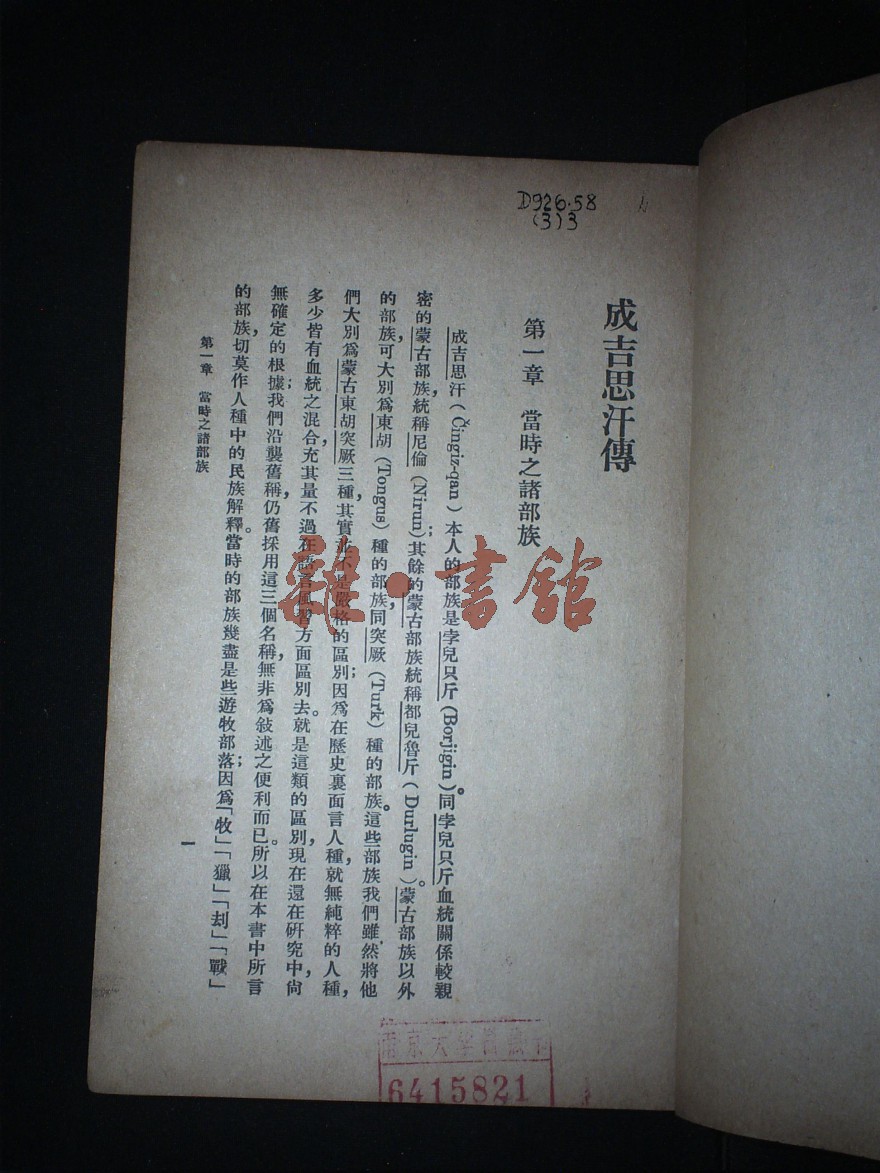 D926.58
(3)3
成吉思汗傳
第一章　當時之諸部族
成吉思汗（Čingiz-qan）本人的部族是孛兒只斤（Borjigin）。同孛兒只斤血統關係較親
密的蒙古部族，統稱尼倫（Nirun）；其餘的蒙古部族統稱都兒魯斤（Durlugin）。蒙古部族以外
的部族，可大別爲東胡（Tongus）種的部族，同突厥（Turk）種的部族。這些部族我們雖然將他
們大別爲蒙古東胡突厥三種，其實並不是嚴格的區別；因爲在歷史裏面言人種，就無純粹的人種，
多少皆有血統之混合，充其量不過在語言風習方面區別去。就是這類的區別，現在還在研究中，尚
無確定的根據；我們沿襲舊稱，仍舊採用這三個名稱，無非爲敍述之便利而已。所以在本書中所言
的部族，切莫作人種中的民族解釋。當時的部族幾盡是些遊牧部落；因爲「牧」「獵」「刦」「戰」
第一章　當時之諸部族
一
雜·書館
南京大學圖書館
6415821